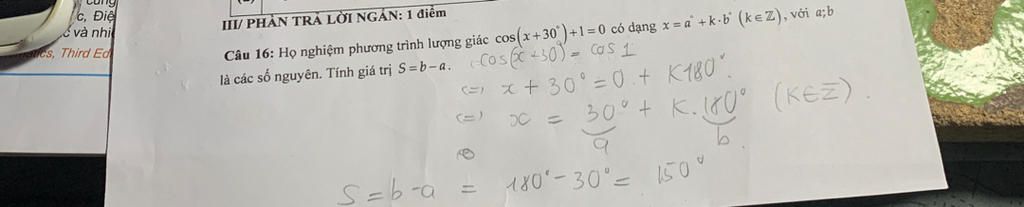 c, Điệ
c và nhi
cs, Third Ed
III/ PHẦN TRẢ LỜI NGẮN: 1 điểm
Câu 16: Họ nghiệm phương trình lượng giác cos(x+30°)+1=0 có dạng x=a°+k·b° (k∈ℤ), với a;b
là các số nguyên. Tính giá trị S=b−a.
cos(x+30°) = cos 1
(=) x + 30° = 0 + K180°
(=) x = 30° + K.180° (K∈Z).
a b
S = b - a = 180° - 30° = 150°